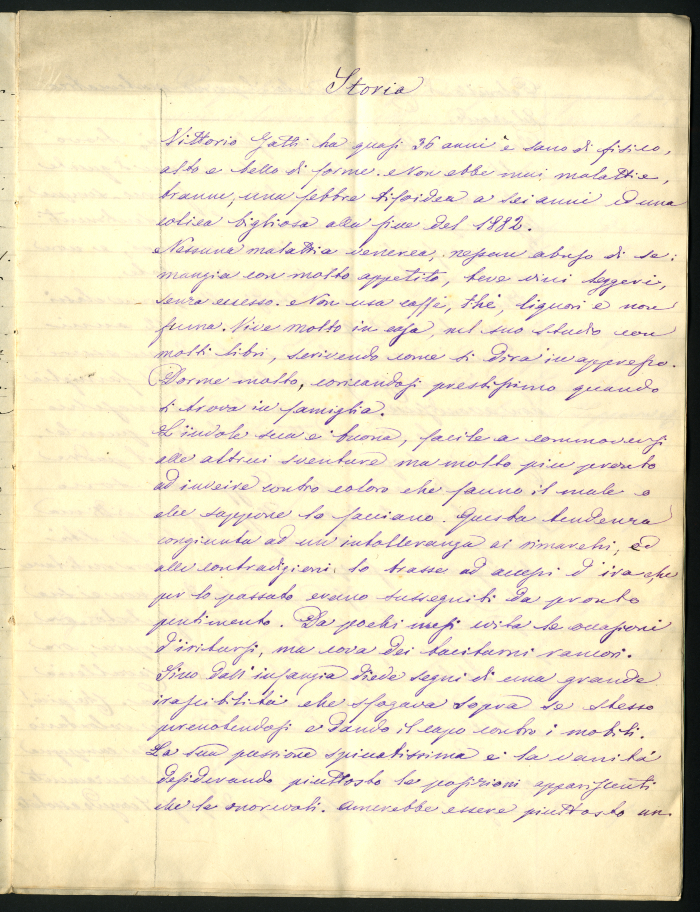 Storia
Vittorio Gatti ha quasi 36 anni è sano di fisico,
alto e bello di forme. Non ebbe mai malattie,
tranne, una febbre tifoidea a sei anni ed una
colica bigliosa alla fine del 1882.
Nessuna malattia venerea, nessun abuso di se;
mangia con molto appetito, beve vini leggeri,
senza eccesso. Non usa caffè, thè, liquori e non
fuma. Vive molto in casa, nel suo studio con
molti libri, scrivendo come si dirà in appresso.
Dorme molto, coricandosi prestissimo quando
si trova in famiglia.
L'indole sua è buona, facile a commoversi
alle altrui sventure ma molto più pronto
ad inveire contro coloro che fanno il male o
che suppone lo facciano. Questa tendenza
congiunta ad un'intolleranza ai rimarchi, ed
alle contradizioni, lo trasse ad accessi d'ira, che
per lo passato erano susseguiti da pronto
pentimento. Da pochi mesi evita le occasioni
d'iritarsi, ma cova dei taciturni rancori.
Sino dall'infanzia diede segni di una grande
irascibilità che sfogava sopra se stesso
percuotendosi e dando il capo contro i mobili.
La sua passione spiccatissima è la vanità
desiderando piuttosto le posizioni appariscenti
che le onorevoli. Amerebbe essere piuttosto un